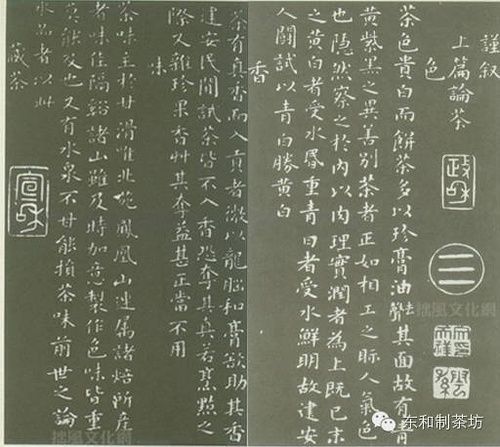 謹叙
上篇論茶
色
茶色貴白而餅茶多以珍膏油去聲其面故有青
黄紫黑之異善别茶者正如相工之眎人氣色
也隱然察之於内以肉理實潤者為上既已末
之黄白者受水昬重青白者受水鮮明故建安
人鬭試以青白勝黄白
香
茶有真香而入貢者微以龍腦和膏欲助其香
建安民間試茶皆不入香恐奪其真若烹點之
際又雜珍果香艸其奪益甚正當不用
味
茶味主於甘滑惟北苑鳳凰山連屬諸焙所産
者味佳隔谿諸山雖及時加意製作色味皆重
莫能及也又有水泉不甘能損茶味前世之論
水品者以此
藏茶
政和
三
宣和
东和制茶坊